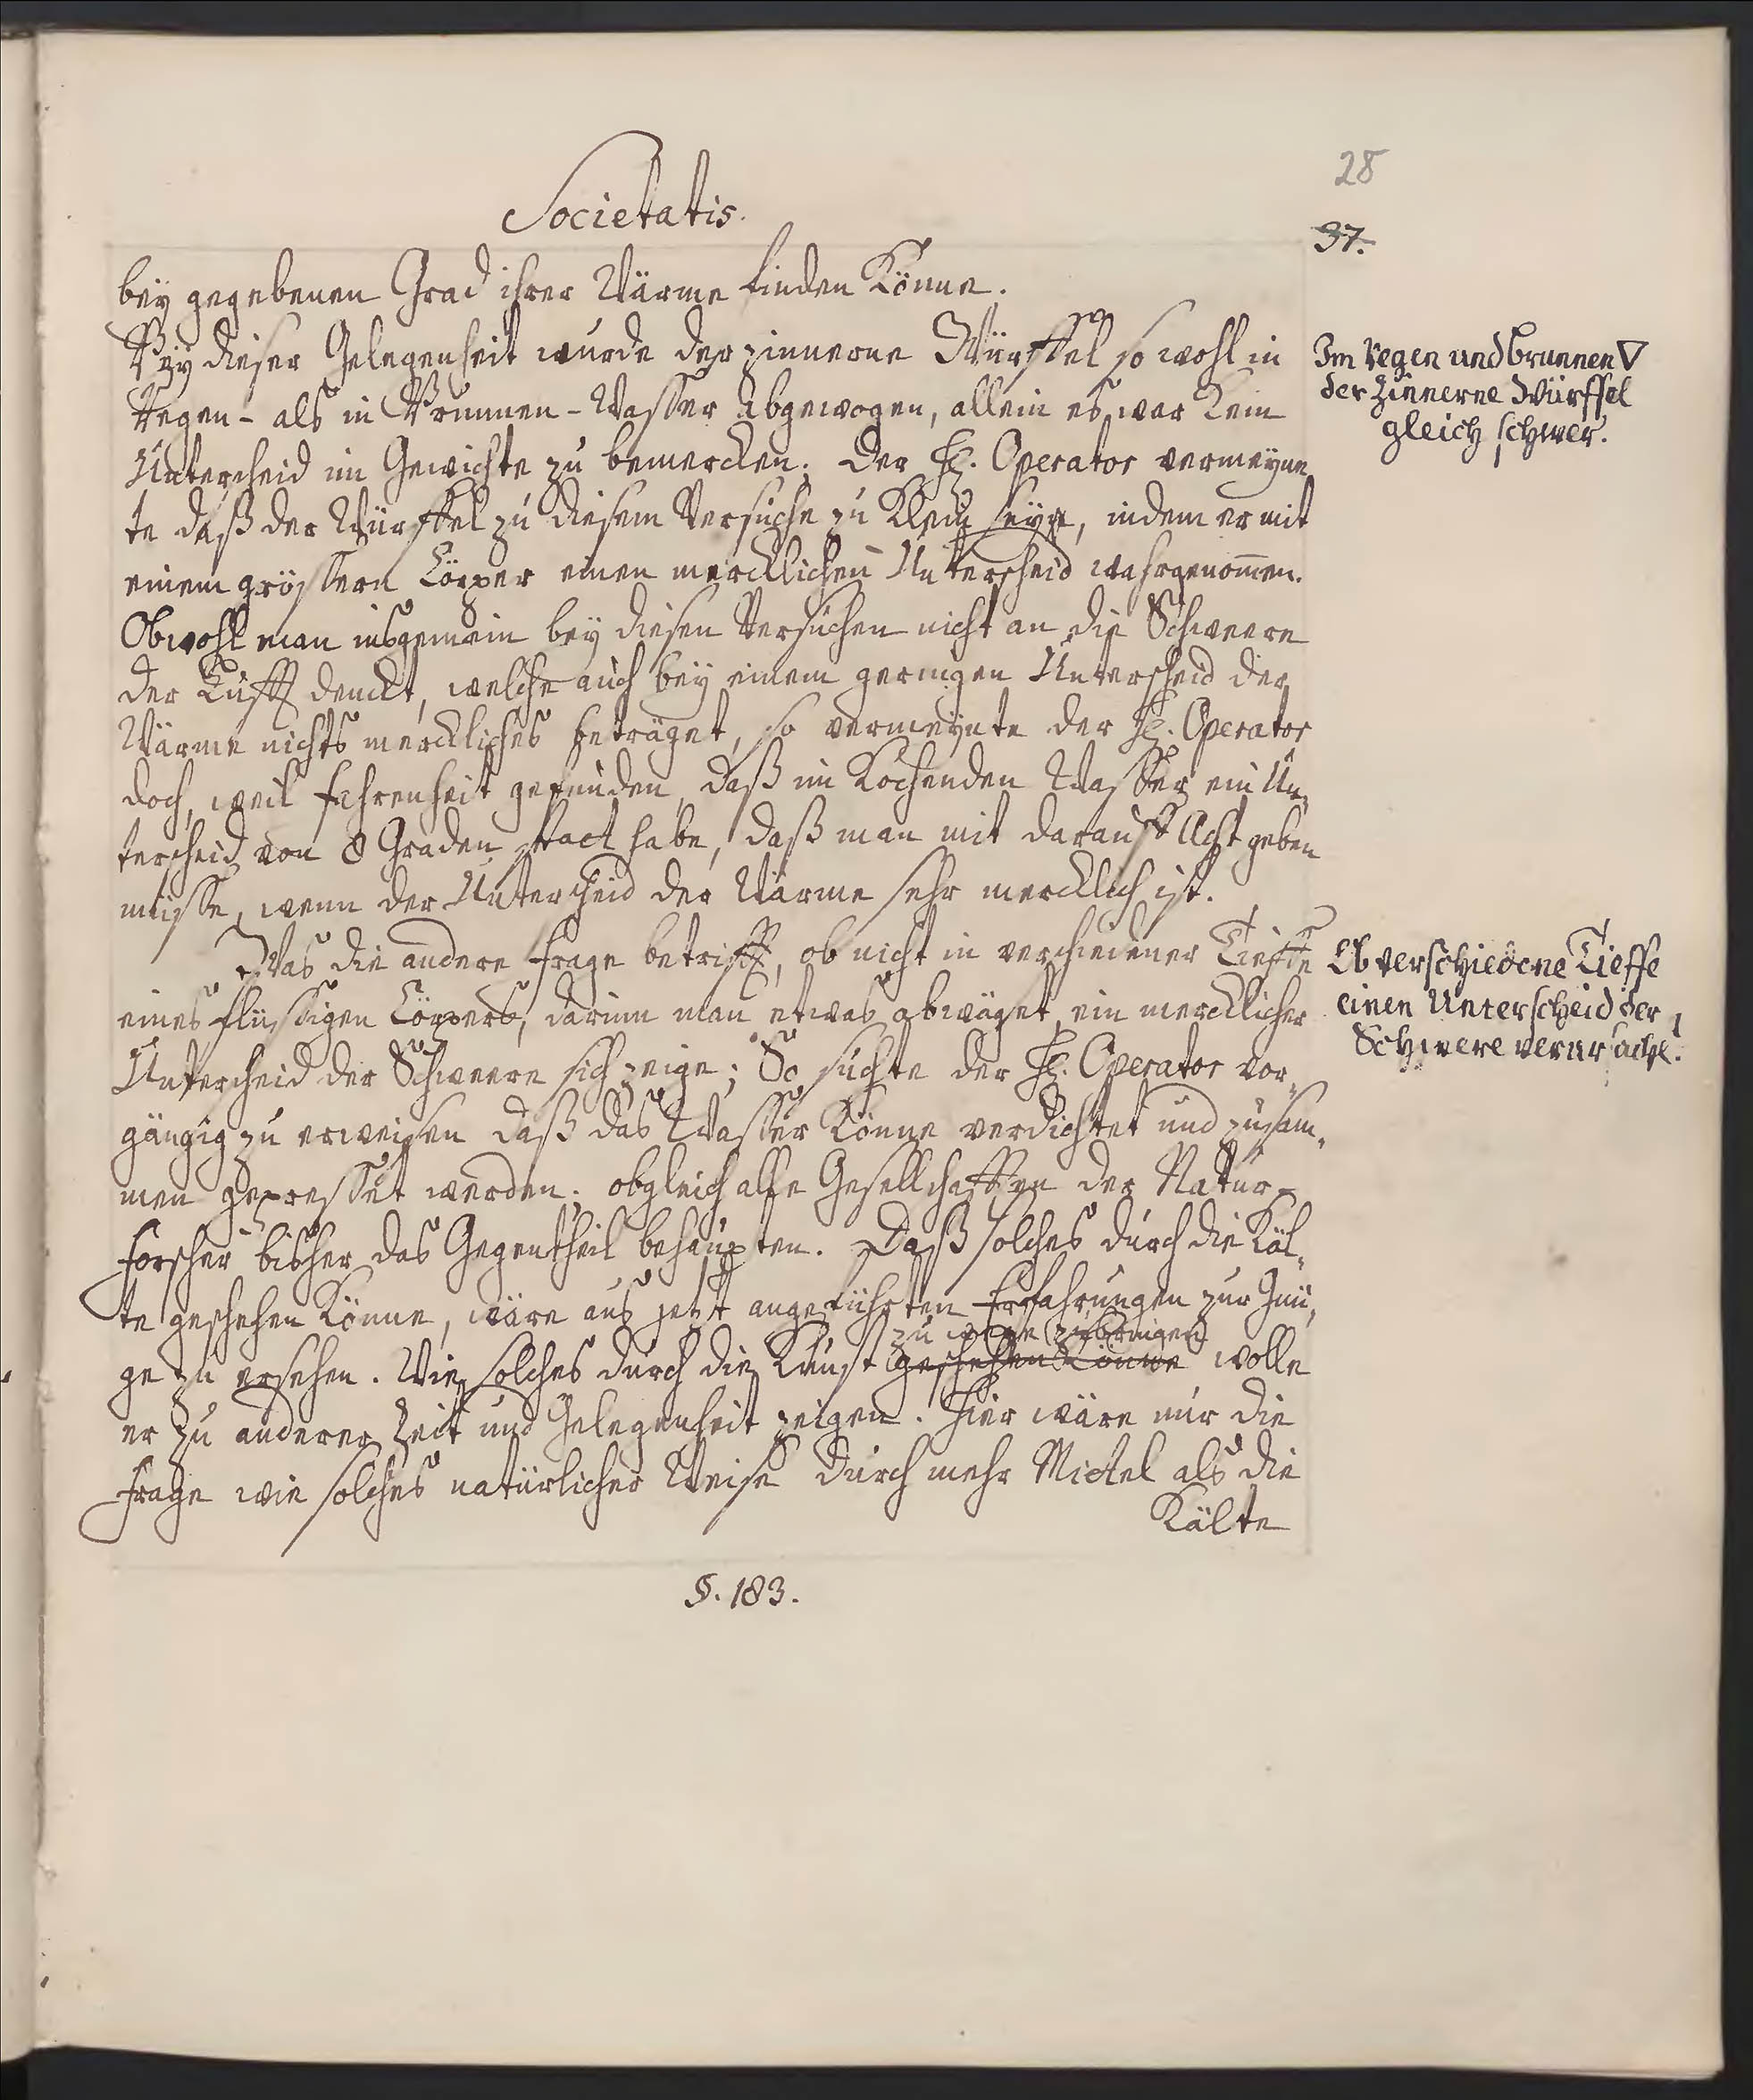 28
Societatis.
37.
bey gegebenen Grad ihrer Wärme finden könne.
Bey dieser Gelegenheit wurde der zinnerne Würffel so wohl in
Regen- als in Brunnen-Wasser abgewogen, allein es war kein
Untercheid im Gewichte zu bemercken. Der H. Operator vermeyne
te daß der Würffel zu diesem Versuche zu klein sey, indem er mit
einem grössern Cörper einen mercklichen Unterscheid wahrgenom̄en.
Obwohl man insgemein bey diesen Versuchen nicht an die Schweere
der Lufft denckt, welche auch bey einem geringen Unterscheid der
Wärme nichts merckliches beträget, so vermeynte der H. Operator
doch, weil Fahrenheit gefunden, daß im kochenden Wasser ein Un-
terscheid von 8 Graden statt habe, daß man mit darauff Acht geben
müsse, wenn der Untercheid der Wärme sehr mercklich ist.
Was die andere Frage betrifft, ob nicht in verschiedener Tieffe
eines flüssigen Cörpers, darinn man etwas abwäget, ein mercklicher
Untercheid der Schweere sich zeige; So suchte der H. Operator vor-
gängig zu erweisen daß das Wasser könne verdichtet und zusam-
men gepresset werden; obgleich alle Gesellschafften der Natur-
forscher bisher das Gegentheil behaupten. Daß solches durch die Käl-
te geschehen könne, wäre aus jetzt angeführten Erfahrungen zur Gnü-
zu wege zubringen
ge zu ersehen. Wie solches durch die Kunst geschehen könne wolle
er zu anderer Zeit und Gelegenheit zeigen. Hier wäre nur die
Frage wie solches natürlicher Weise durch mehr Mittel als die
Kälte
§. 183.
Im Regen und brunnen ▽
der Zinnerne Würffel
gleich schwer.
Ob verschiedene Tieffe
einen Unterscheid der
Schwere verursache.